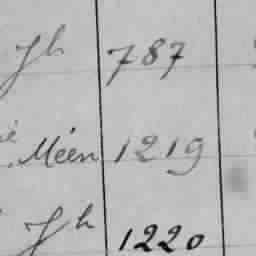 Jh 787
Méen 1219
Jh 1220